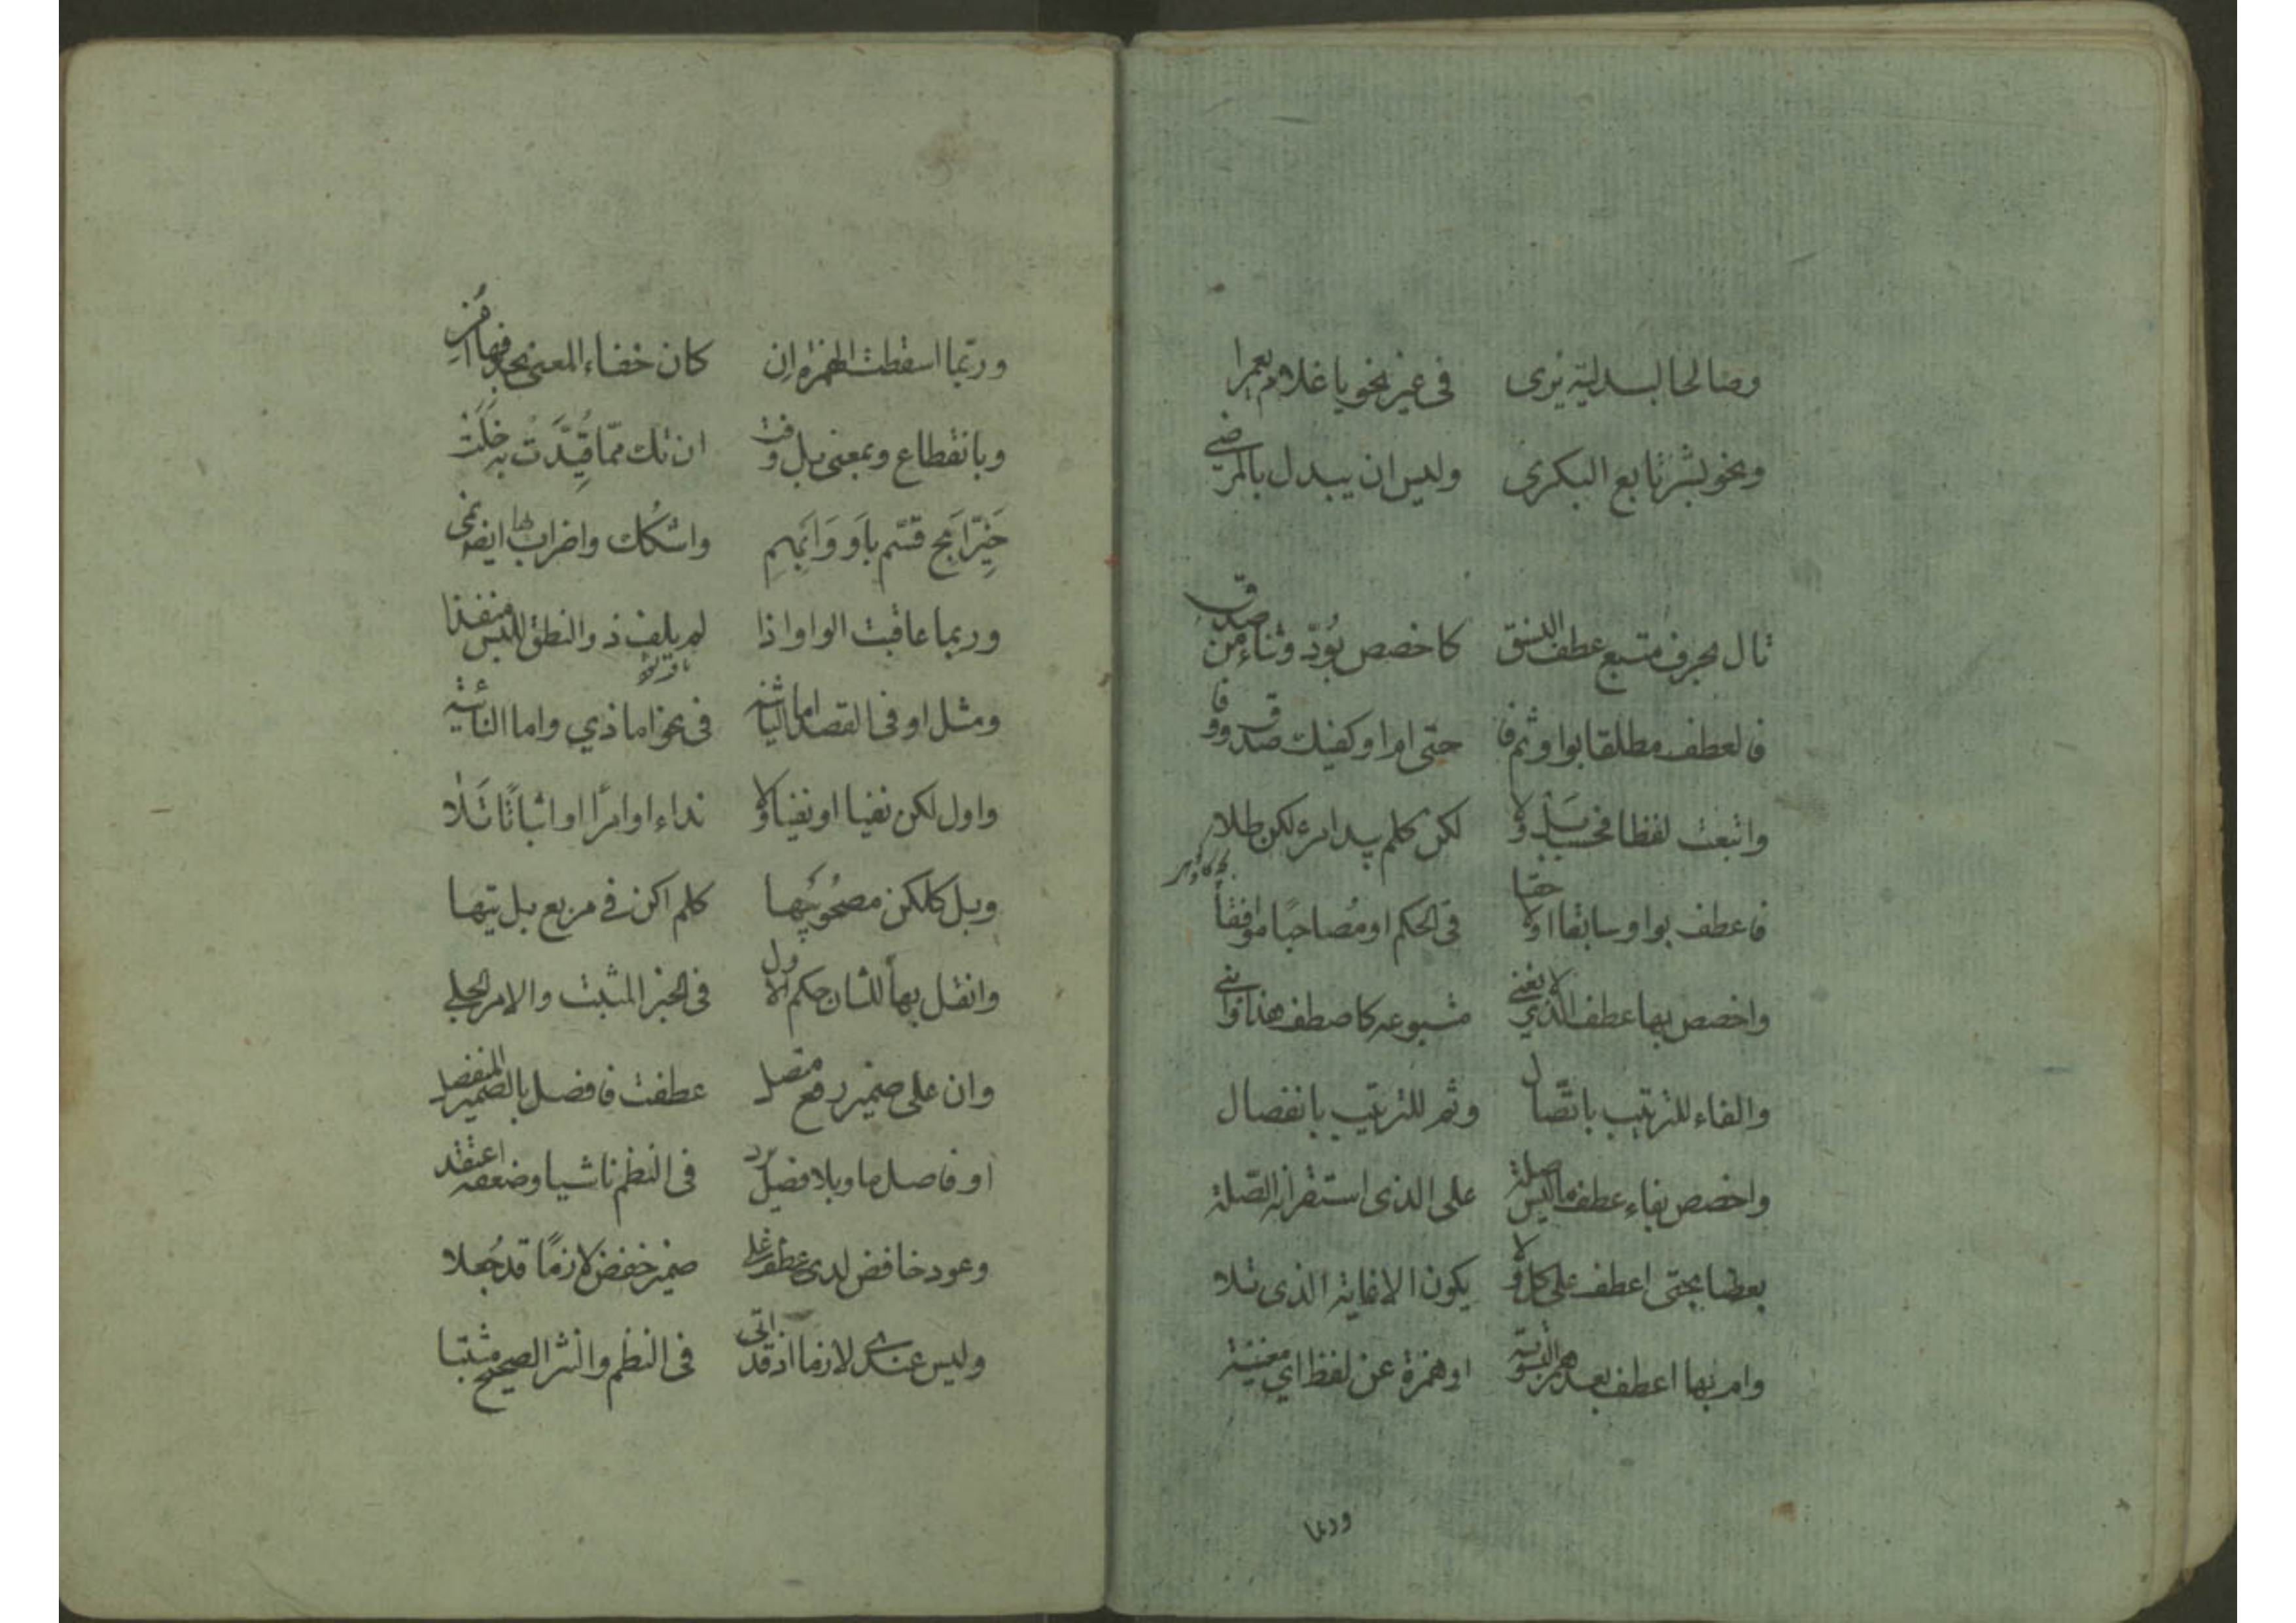 وصالحا لبدلية يرى في غير نحو يا غلام يعمرا
ونحو بشر تابع البكري وليس ان يبدل بالمرضي
تال بحرف متبع عطف النسق كاخصص بود وثناء من صدق
فالعطف مطلقا بواو ثم فا حتى ام او كفيك صدق ووفا
واتبعت لفظا فحسب بل ولا لكن كلم يبد امرء لكن طلا
فاعطف بواو سابقا او لاحقا في الحكم او مصاحبًا موافقاً
واخصص بها عطف الذي لا يغني متبوعه كاصطف هذا وابني
والفاء للترتيب باتّصال وثم للترتيب بانفصال
واخصص بفاء عطف ما ليس صلة على الذي استقر انه الصّلة
بعضا بحتى اعطف على كل ولا يكون الا غاية الذي تلا
وام بها اعطف بعد همز التسوية او همزة عن لفظ اي مغنية
وربما
وربّما اسقطت الهمزة اِن كان خفاء المعنى بحذفها اُمِن
وبانقطاع وبمعنى بل وفت ان تك ممّا قُيِّدَتْ به خَلَتْ
خَيِّر اَبِح قسّم باَو وَاَبْهِمِ واشكُك واضراب بها ايضا نمى
وربما عاقبت الواو اذا لم يلف ذو النطق للبس منفذا
ومثل او في القصد اما الثانية في نحو اما ذي واما النائية
واول لكن نفيا او نهيا ولا نداء او امرًا او اثباتًا تَلا
وبل كلكن بعد مصحُوبَيْها كلم اكن في مربع بل تيها
وانقل بها للثان حكم الاول في الخبر المثبت والامر الجلي
وان على ضمير رفع متصل عطفت فافصل بالضمير المنفصل
او فاصل ما وبلا فصل يرد في النظم فاشيا وضعفه اعتقد
وعود خافض لدى عطف على ضمير خفض لازمًا قد جُعلا
وليس عندي لازما اذ قد اتى في النظم والنثر الصحيح مثبتا